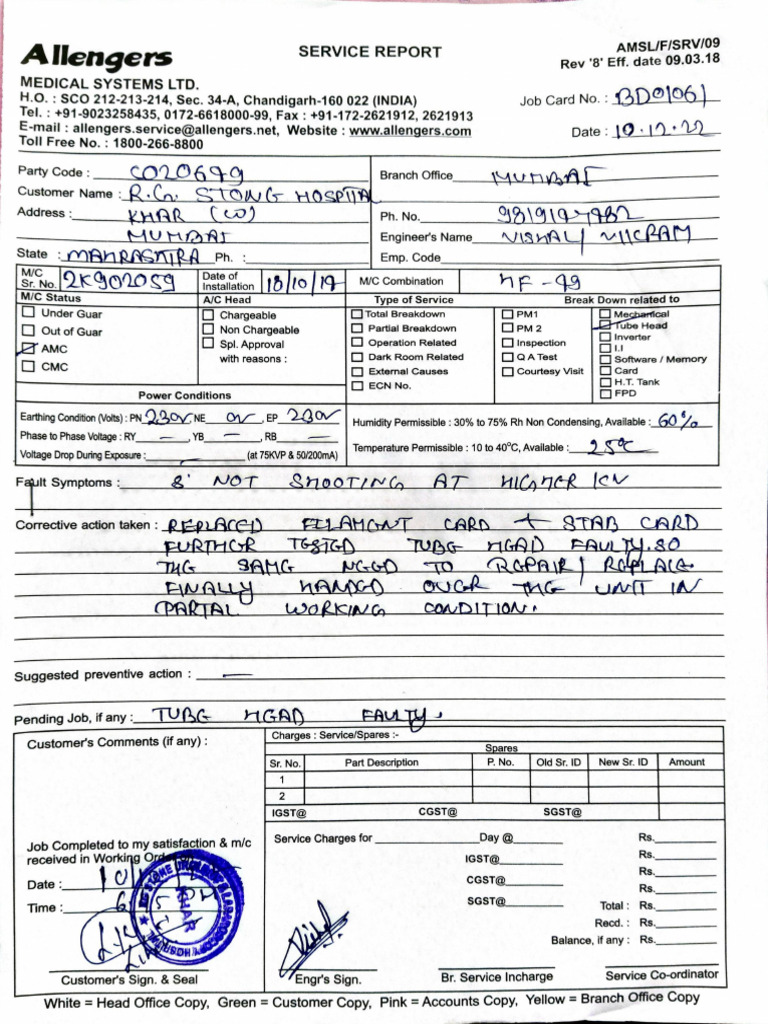 Allengers
SERVICE REPORT
AMSL/F/SRV/09
Rev '8' Eff. date 09.03.18
MEDICAL SYSTEMS LTD.
H.O. : SCO 212-213-214, Sec. 34-A, Chandigarh-160 022 (INDIA)
Tel. : +91-9023258435, 0172-6618000-99, Fax : +91-172-2621912, 2621913
E-mail : allengers.service@allengers.net, Website : www.allengers.com
Toll Free No. : 1800-266-8800
Job Card No. : BD01061
Date : 10.12.22
Party Code : CO20679
Customer Name : R.G. STONG HOSPITAL
Address : KHAR (W)
MUMBAI
State : MAHRASHTRA Ph. :
Branch Office MUMBAI
Ph. No.
Engineer's Name VISHAL/ VIICRAM
Emp. Code
M/C Sr. No. 2K902059
Date of Installation 18/10/17
M/C Combination HF-49
M/C Status
Under Guar
Out of Guar
AMC
CMC
A/C Head
Chargeable
Non Chargeable
Spl. Approval
with reasons :
Type of Service
Total Breakdown
Partial Breakdown
Operation Related
Dark Room Related
External Causes
ECN No.
PM1
PM 2
Inspection
Q A Test
Courtesy Visit
Break Down related to
Mechanical
Tube Head
Inverter
I.I
Software / Memory
Card
H.T. Tank
FPD
Power Conditions
Earthing Condition (Volts) : PN 230V, NE 0V, EP 230V
Phase to Phase Voltage : RY —, YB —, RB —
Voltage Drop During Exposure : (at 75KVP & 50/200mA)
Humidity Permissible : 30% to 75% Rh Non Condensing, Available : 60%
Temperature Permissible : 10 to 40°C, Available : 25°C
Fault Symptoms : NOT SHOOTING AT HIGHER KV
Corrective action taken : REPLACED FILAMGNT CARD + STAB CARD
FURTHGR TGSTGD TUBG HGAD FAULTY.SO
THG SAMG NGGD TO RGPAIR/ RGPLACG
FINALLY HANDGD OVGR THG UNIT IN
PARTAL WORKING CONDITION.
Suggested preventive action : —
Pending Job, if any : TUBG HGAD FAULTY.
Customer's Comments (if any) :
Charges : Service/Spares :-
Spares
Sr. No. Part Description P. No. Old Sr. ID New Sr. ID Amount
1
2
IGST@ CGST@ SGST@
Job Completed to my satisfaction & m/c
received in Working Order on
Date :
Time :
Service Charges for Day @ Rs.
IGST@ Rs.
CGST@ Rs.
SGST@ Rs.
Total : Rs.
Recd. : Rs.
Balance, if any : Rs.
KHAR
Customer's Sign. & Seal
Engr's Sign.
Br. Service Incharge
Service Co-ordinator
White = Head Office Copy, Green = Customer Copy, Pink = Accounts Copy, Yellow = Branch Office Copy